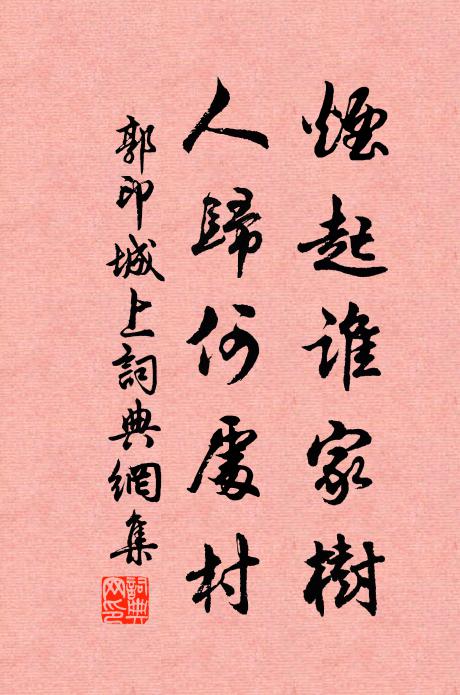 煙起誰家樹
人歸何處村
郭印城上詞典網集
詞典
网印